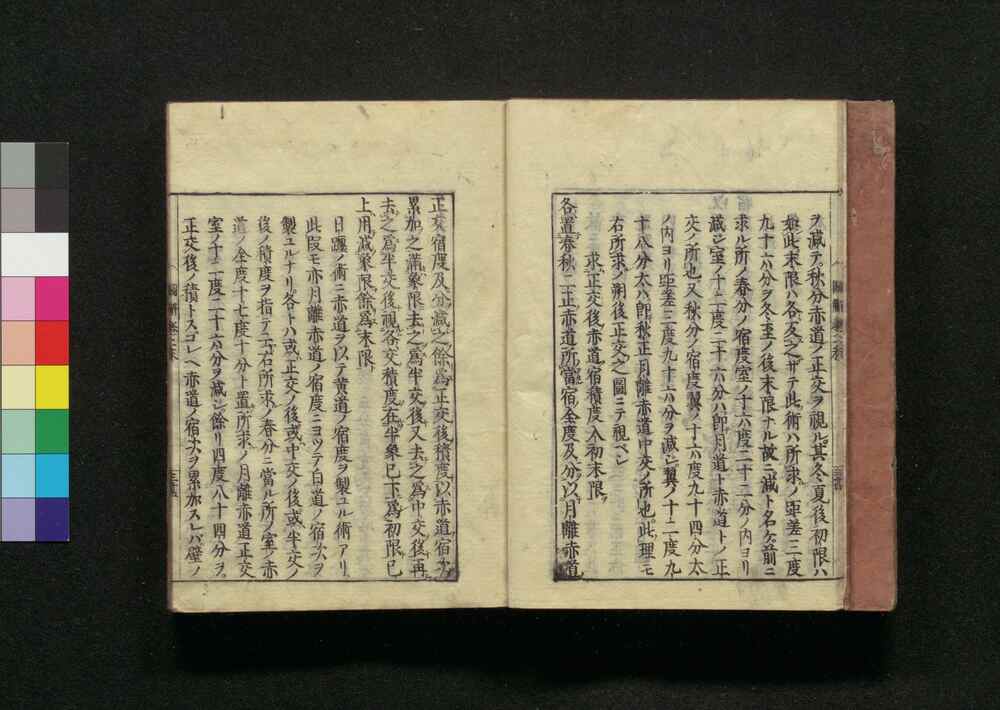 ヲ減テ秋分赤道ノ正交ヲ視ル其冬夏後初限ハ
如此末限ハ各反之サテ此術ハ所求ノ距差三度
九十六分ヲ冬至ノ後末限ナル故ニ減ト名ケ前ニ
求ル所ノ春分ノ宿度室ノ十六度二十二分ノ内ヨリ
減シ室ノ十二度二十六分ハ即月道ト赤道トノ正
交ノ所也又秋分ノ宿度翼ノ十六度九十四分太
ノ内ヨリ距差三度九十六分ヲ減シ翼ノ十二度九
十八分太ハ即秋正月離赤道中交ノ所也此理モ
右所求ノ朔後正交之圖ニテ視ベシ
求正交後赤道宿積度入初末限
各置春秋二正赤道所當宿全度及分以月離赤道
正交宿度及分減之餘為正交後積度以赤道宿次
累加之滿象限去之為半交後又去之為中交後再
去之為半交後視各交積度在半象已下為初限已
上用減象限餘為末限
日躔ノ術ニ赤道ヲ以テ黄道ノ宿度ヲ製ユル術アリ
此段モ亦月離赤道ノ宿度ニヨツテ白道ノ宿次ヲ
製ユルナリ各トハ或ハ正交ノ後或ハ中交ノ後或ハ半交ノ
後ノ積度ヲ指テ云右所求ノ春分ニ當ル所ノ室ノ赤
道ノ全度十七度十分ト置所求ノ月離赤道正交
室ノ十二度二十六分ヲ減シ餘リ四度八十四分ヲ
正交後ノ積トスコレヘ赤道ノ宿次ヲ累加スレバ壁ノ